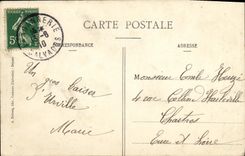 CARTE POSTALE
CORRESPONDANCE
ADRESSE
Un gros baiser
d'Urville
Marie
Monsieur Emile
4 rue Collin d'Harleville
Chartres
Eure et Loire